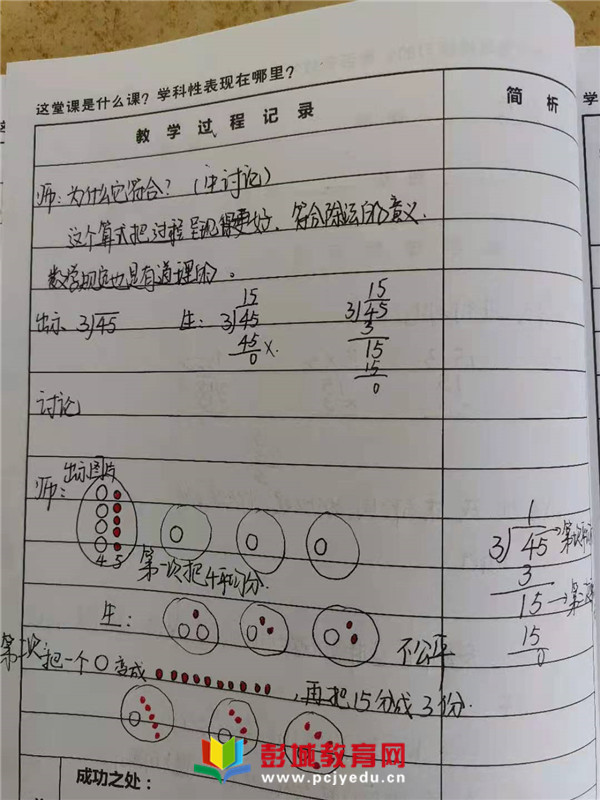 这堂课是什么课？学科性表现在哪里？
教学过程记录
简析
师：为什么它符合？（生讨论）
这个算式把过程呈现得更好，符合除法的意义．
数学规定也是有道理的。
出示 3)45 生：
15
3)45
45
0 ×.
15
3)45
3
15
15
0
讨论
师：出示图片
4 5
第一次把4平均分．
生：
不公平
第二次把一个○变成
，再把15分成3份．
1
3)45
3
15
15
0
彭城教育网
www.pcjyedu.cn
成功之处：